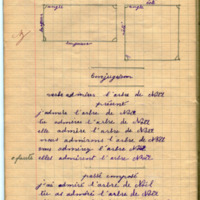 angle
angle
longueur
côté
Conjugaison
verbe admirer l'arbre de Noël
présent
j'admire l'arbre de Noël
tu admires l'arbre de Noël
elle admire l'arbre de Noël
nous admirons l'arbre de Noël
vous admirez l'arbre de Noël
elles admirent l'arbre de Noël
passé composé
j'ai admiré l'arbre de Noël
tu as admiré l'arbre de Noël